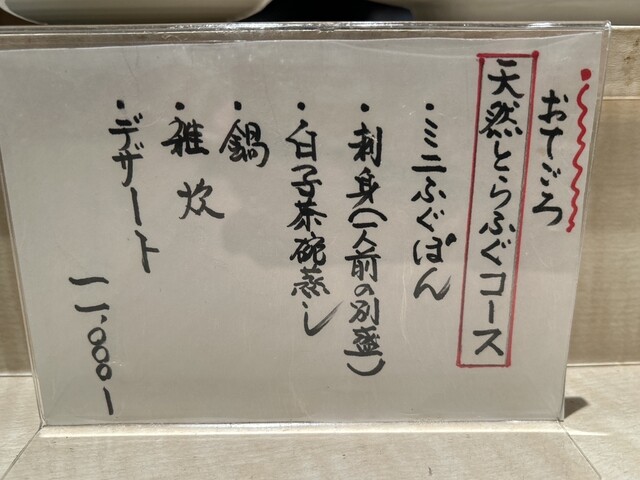 おてごろ
天然とらふぐコース
・ミニふぐぽん
・刺身(一人前の別盛)
・白子茶碗蒸し
・鍋
・雑炊
・デザート
一一、〇〇〇ー